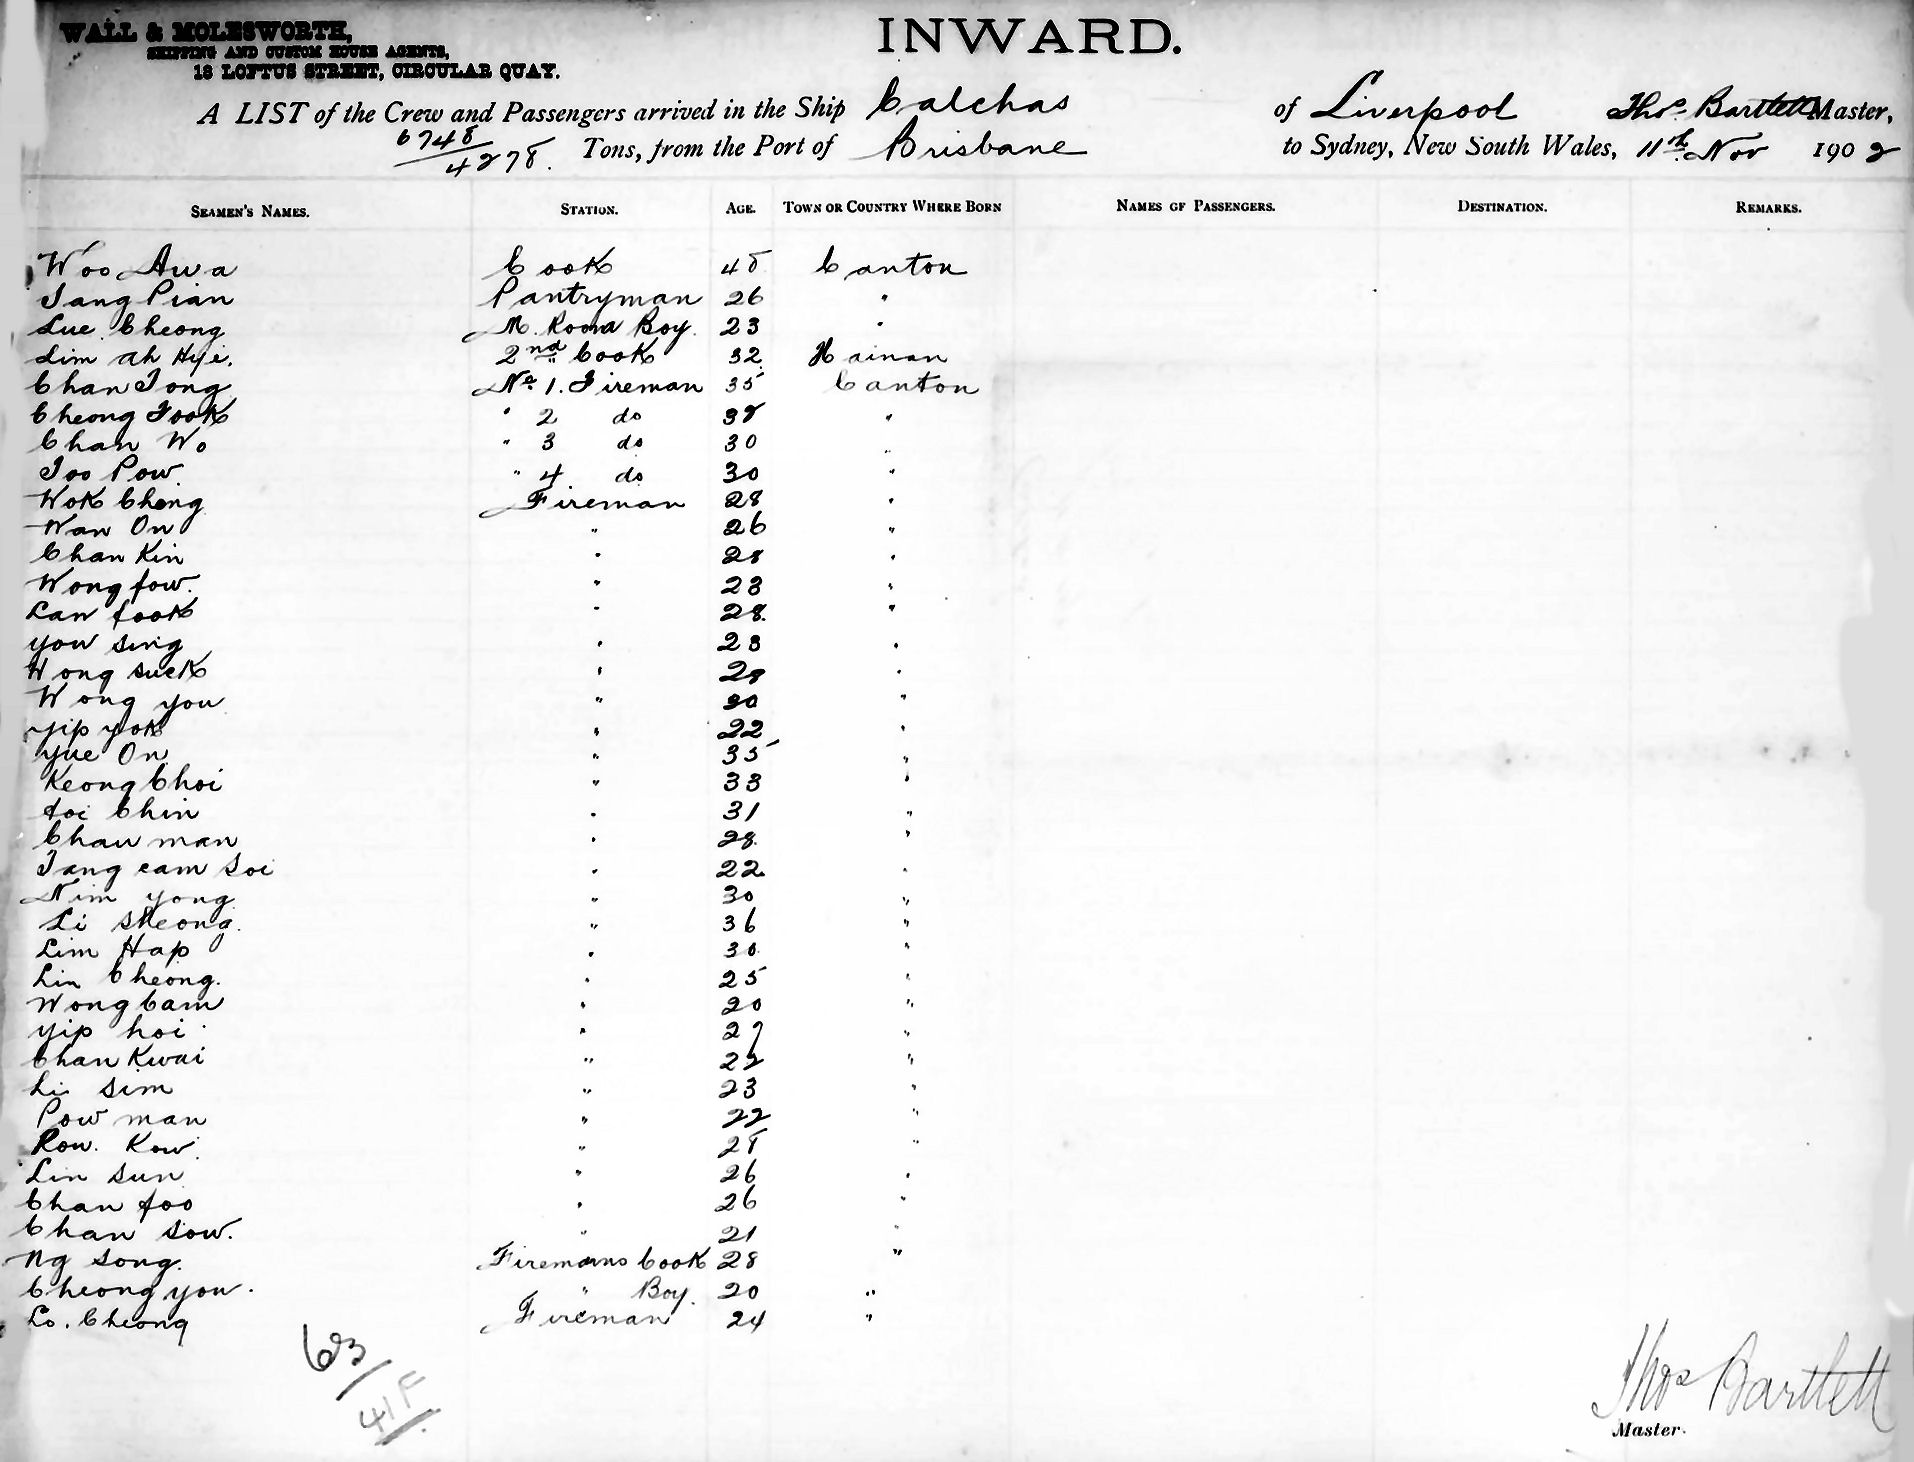 WALL & MOLESWORTH,
SHIPPING AND CUSTOM HOUSE AGENTS,
18 LOFTUS STREET, CIRCULAR QUAY.
INWARD.
A LIST of the Crew and Passengers arrived in the Ship Calchas of Liverpool Thos. Bartlett Master,
6748/4278. Tons, from the Port of Brisbane to Sydney, New South Wales, 11th Nov 1902
SEAMEN'S NAMES. STATION. AGE. TOWN OR COUNTRY WHERE BORN NAMES OF PASSENGERS. DESTINATION. REMARKS.
Woo Awa Cook 48 Canton
Tang Pian Pantryman 26 "
Lue Cheong M. Room Boy. 23 "
Lim Ah Hye. 2nd Cook 32 Hainan
Chan Tong No. 1. Fireman 35 Canton
Cheong Fook " 2 do 38 "
Chan Wo " 3 do 30 "
Too Pow " 4 do 30 "
Wok Cheng Fireman 28 "
Wan On " 26 "
Chan Kin " 28 "
Wong fow. " 23 "
Law fook " 28. "
you sing " 23 "
Wong suck " 28 "
Wong you " 30 "
yip yok " 22 "
yue On " 35 "
Keong Choi " 33 "
foi Chin " 31 "
Chau man " 28. "
Tang cam Soi " 22 "
Nim yong " 30 "
Li Sheong. " 36 "
Lim Hap " 30 "
Lin Cheong. " 25 "
Wong Cam " 20 "
yip hoi " 27 "
Chan Kwai " 22 "
Li Sim " 23 "
Pow man " 22 "
Row. Kow. " 28 "
Lin Sun " 26 "
Chan foo " 26 "
Chan Sow. " 21 "
Ng Song. Firemans Cook 28 "
Cheong you. " Boy. 20 "
Lo. Cheong Fireman 24 "
63/
41F
Thos Bartlett
Master.